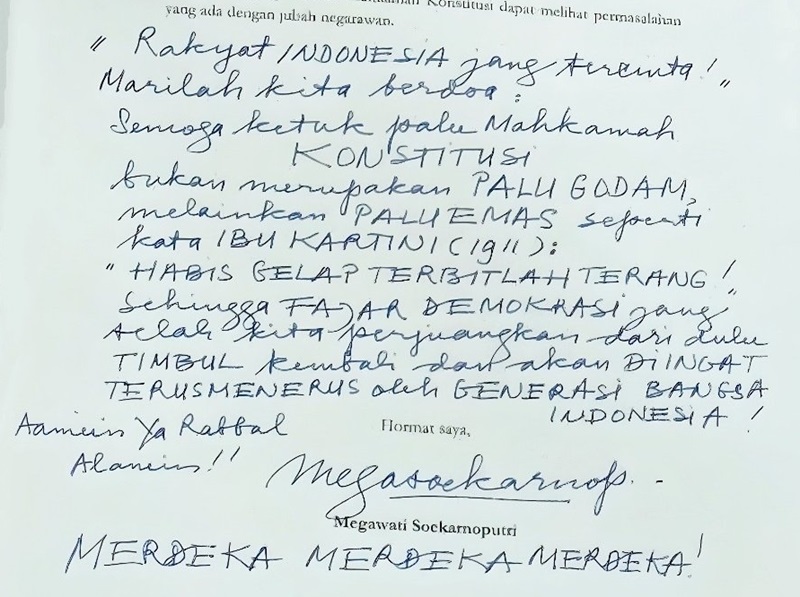 Konstitusi dapat melihat permasalahan
yang ada dengan jubah negarawan.
" Rakyat INDONESIA jang tercinta! "
Marilah kita berdoa :
Semoga ketuk palu Mahkamah
KONSTITUSI
bukan merupakan PALU GODAM,
melainkan PALU EMAS seperti
kata IBU KARTINI (1911) :
" HABIS GELAP TERBITLAH TERANG ! "
Sehingga FAJAR DEMOKRASI jang
telah kita perjuangkan dari dulu
TIMBUL kembali dan akan DIINGAT
TERUSMENERUS oleh GENERASI BANGSA
INDONESIA !
Aamiin Ya Rabbal
Alamin!!
Hormat saya,
Megawati Soekarnoputri
MERDEKA MERDEKA MERDEKA!